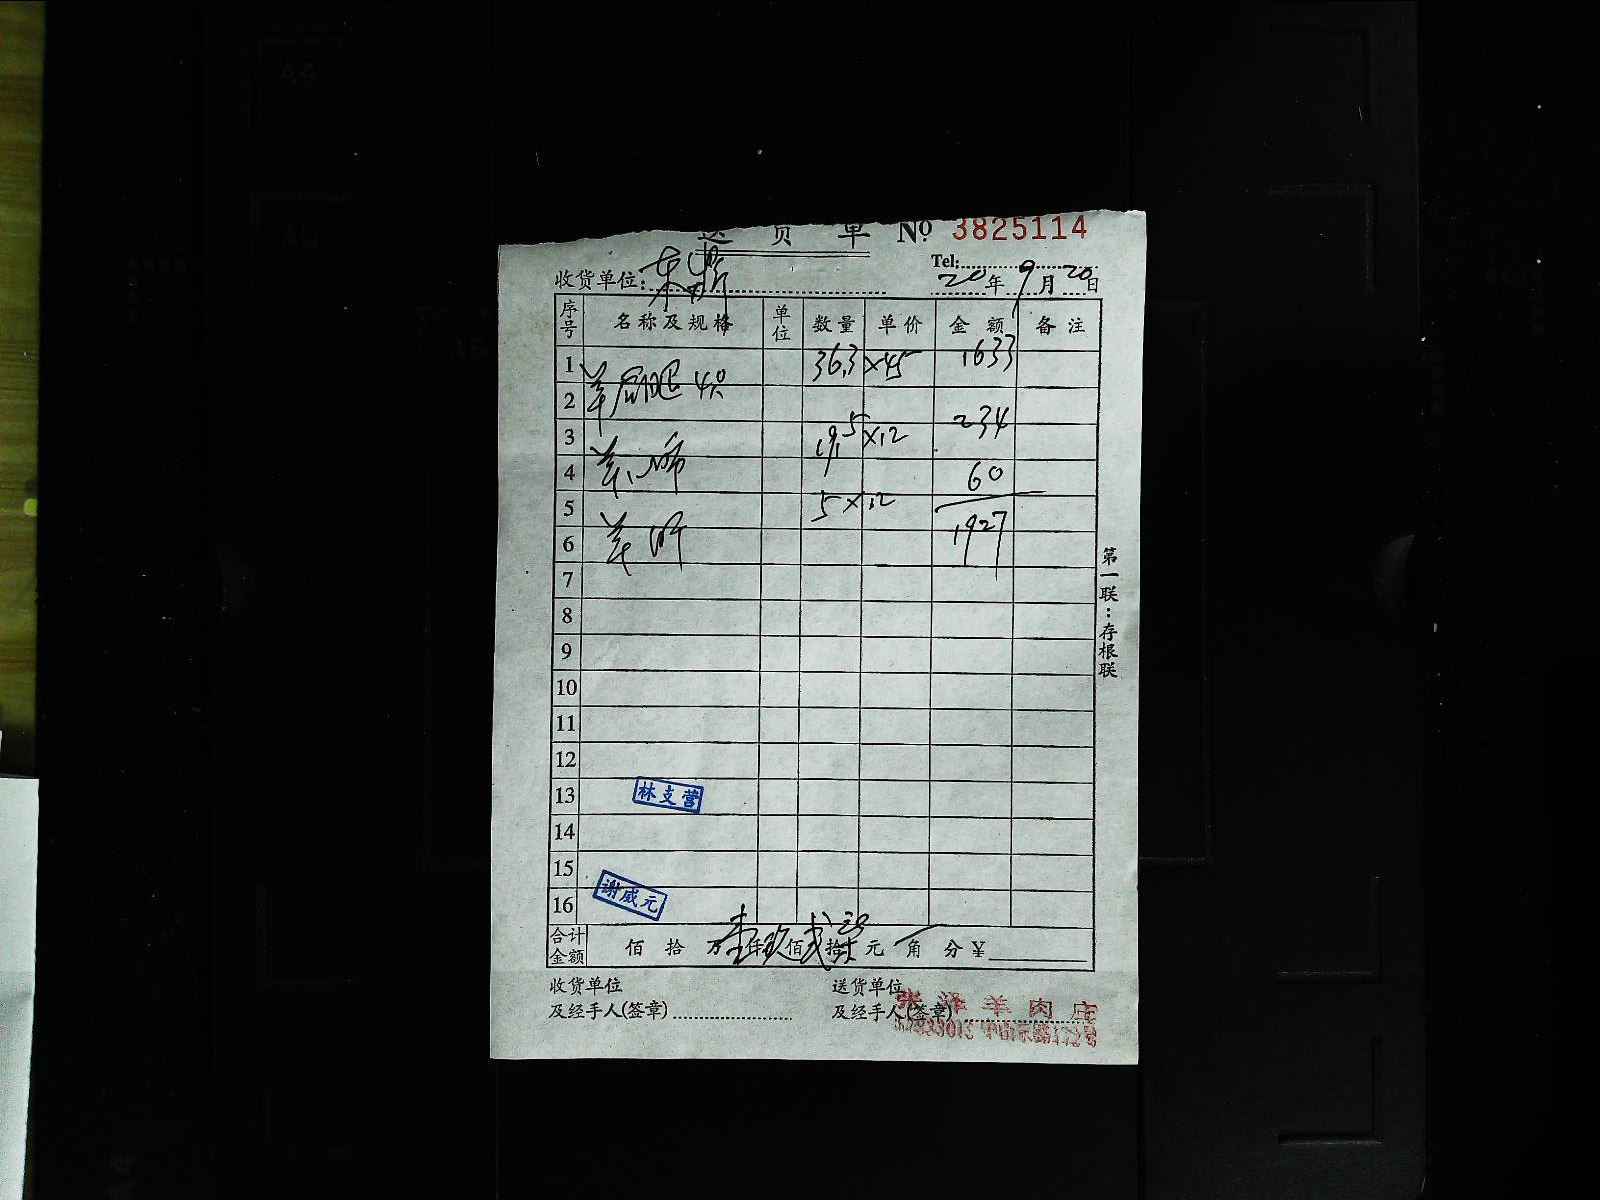 送货单 № 3825114
Tel:
收货单位: 东 20年9月20日
序号 名称及规格 单位 数量 单价 金额 备注
1 36.3 ×45 1633
2 羊后腿 4只
3 19.5 ×12 234
4 羊 60
5 5 ×12
6 羊 1927
7
8
9
10
11
12
13 林支营
14
15
16 谢威元
合计金额 佰 拾 万 壹 仟 玖 佰 贰 拾 柒 元 角 分 ¥
收货单位 送货单位
及经手人(签章) 及经手人(签章)
张泽羊肉庄
第一联:存根联